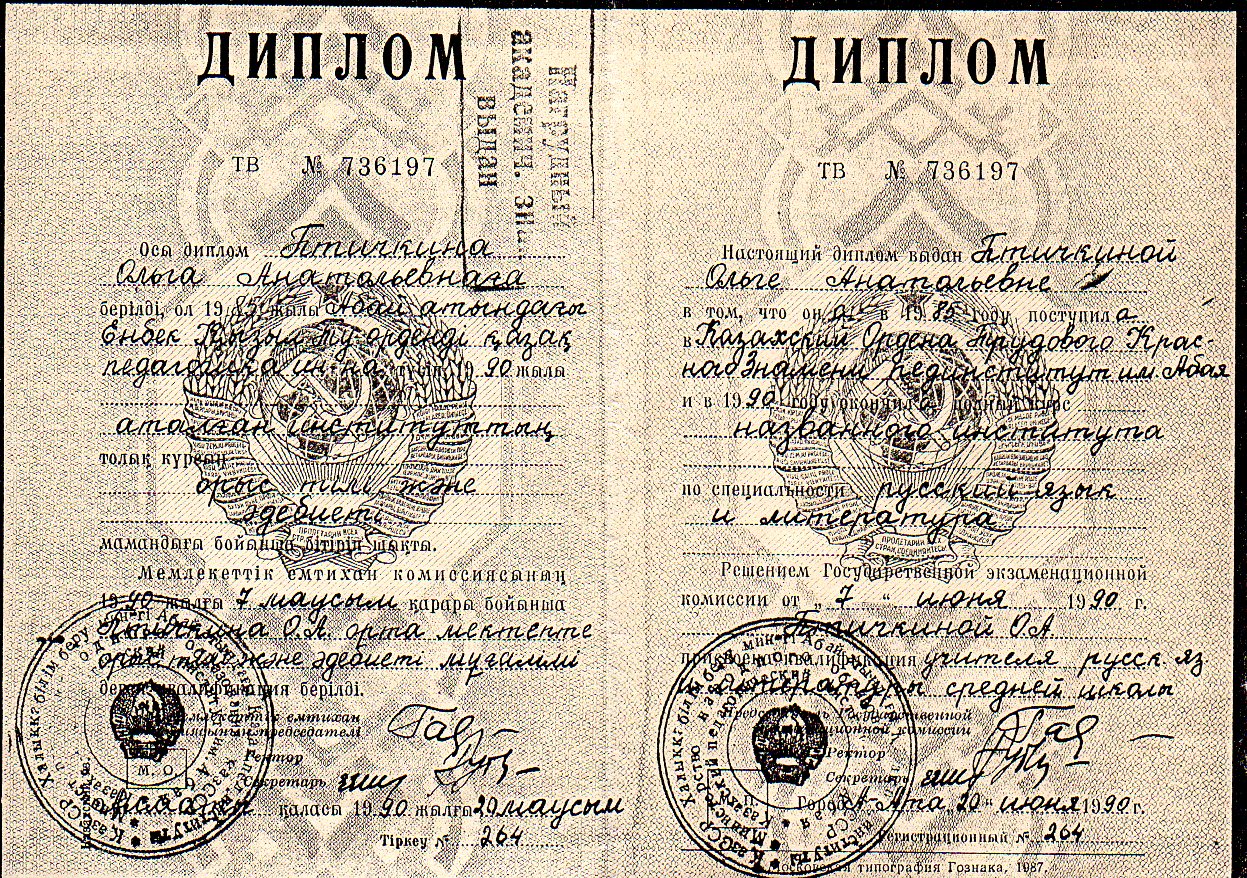 ДИПЛОМ
ТВ № 736197
Нагрудный
академич. зн
выдан
Осы диплом Птичкина
Ольга Анатольевнаға
берілді, ол 1985 жылы Абай атындағы
Еңбек Қызыл ту орденді қазақ
педагогика ин-на түсіп 1990 жылы
аталған институттың
толық курсын
орыс тілі және
әдебиеті
мамандығы бойынша бітіріп шықты.
Мемлекеттік емтихан комиссиясының
1990 жылғы 7 маусым қарары бойынша
Птичкина О.А. орта мектепте
орыс тілі және әдебиеті мұғалімі
квалификация берілді.
емтихан
председателі
Ректор
Секретарь
М. О.
қаласы 1990 жылғы 20 маусым
Тіркеу № 264
ДИПЛОМ
ТВ № 736197
Настоящий диплом выдан Птичкиной
Ольге Анатольевне
в том, что она в 1985 году поступила
в Казахский Ордена Трудового Крас-
ного Знамени пединститут им. Абая
и в 1990 году окончила полный курс
названного института
по специальности русский язык
и литература
Решением Государственной экзаменационной
комиссии от „7“ июня 1990 г.
Птичкиной О.А
присвоена квалификация учителя русск. яз
и литературы средней школы
Председатель Государственной
экзаменационной комиссии
Ректор
Секретарь
М. П.
Город А-Ата, 20 “ июня 1990 г.
Регистрационный № 264
Московская типография Гознака, 1987.